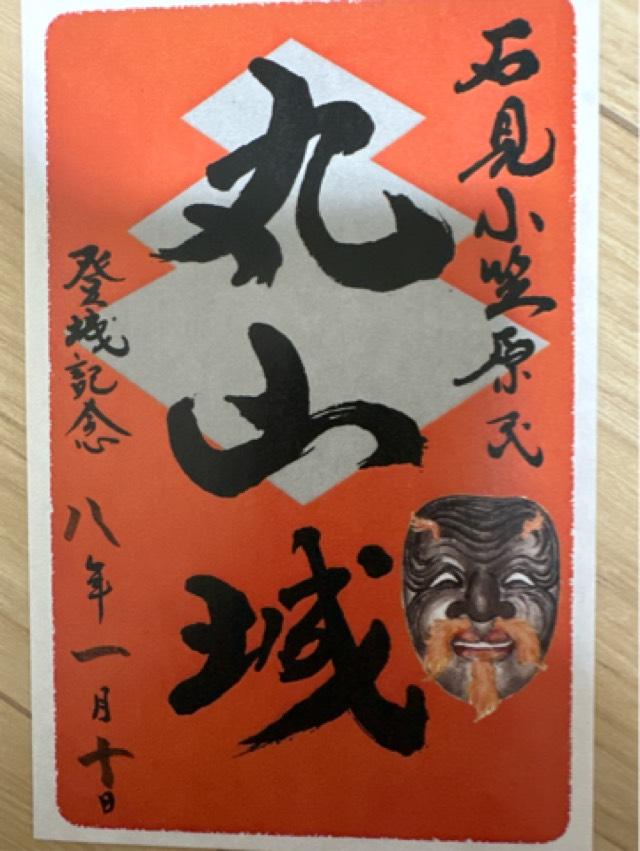 石見小笠原氏
丸山城
登城記念 八年一月十日